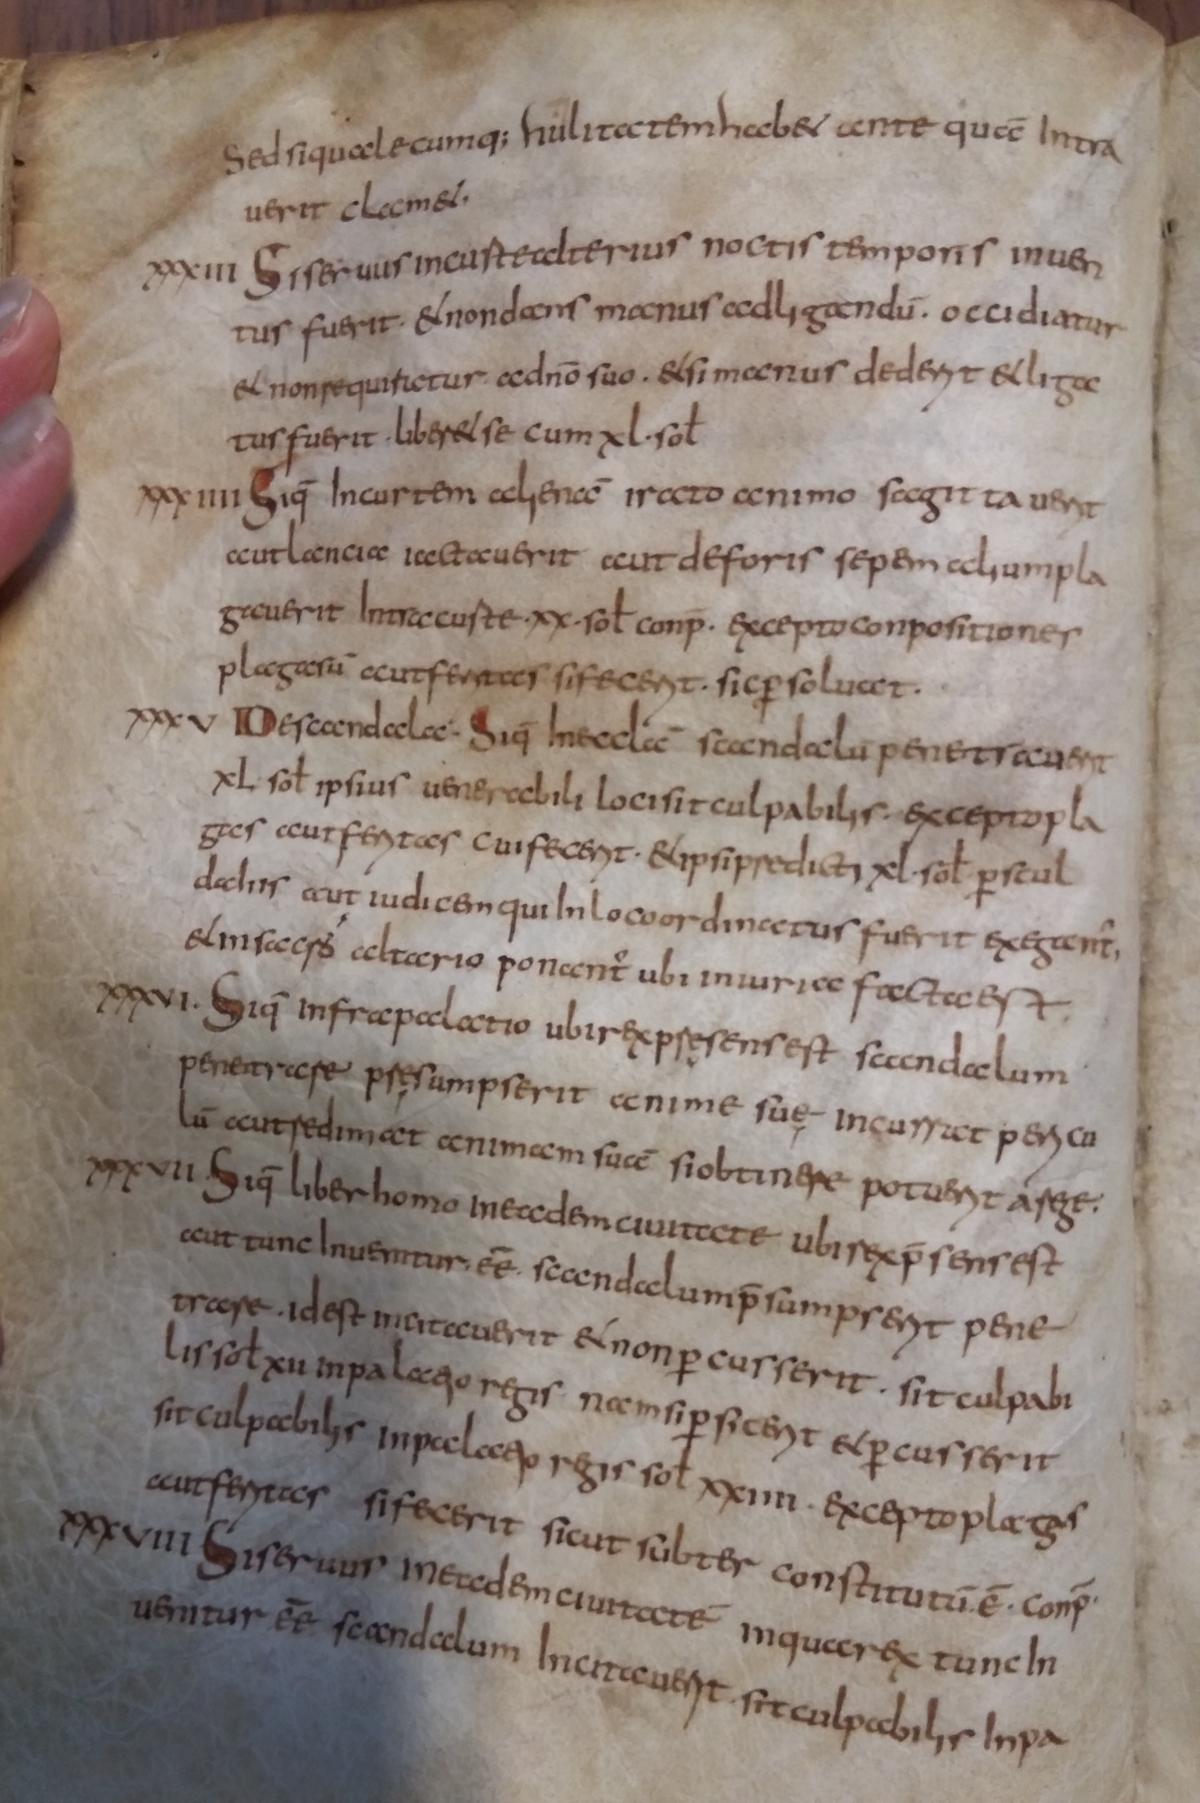 Sed siqualecumq; hutilitatem habet ante quā intra
uerit clamet.
xxxiii Siseruus incuste alterius noctis temporis inuen
tus fuerit. & nondans manus adligandū. occidiatur
& nonrequiratur adnō suo. & si manus dederit & liga
tus fuerit. liberet se cum xl. sol
xxxiiii Siq̄ Incurtem alienā irato animo sagitta uerit
aut lancia iactauerit aut deforis sepem alium pla
gauerit Intra custe. xx. sol conp̄. excepto conpositiones
plagarū aut feritas si fecerit. sic p̄soluat.
xxxv De scandala. Siq̄ In eclā scandalū penetrauerit
xl. sol ipsius uenerabili loci sit culpabilis. excepto pla
gas aut feritas cui fecerit. & ipsi predicti xl. sol p̄ scul
dahis aut iudicem qui In loco ordinatus fuerit exegant̄,
& in sacrs̄ altario ponant̄ ubi iniuria facta est.
xxxvi. Siq̄ infra palatio ubi rex pręsens est scandalum
penetrare pręsumpserit anime suę incurrat pericu
lū aut redimat animam suā si obtinere potuerit a rege.
xxxvii Siq̄ liber homo in eadem ciuitate ubi rex p̄sens est
aut tunc Inuenitur. eē. scandalum p̄sumpserit pene
trare. id est incitauerit & non p̄cusserit. sit culpabi
lis sol xii in palatio regis nam si p̄ficerit & p̄cusserit
sit culpabilis in palatio regis sol xxiiii. excepto plagas
aut feritas si fecerit sicut subter constitutū. ē. conp̄.
xxxviii Siseruus in eadem ciuitatē in qua rex tunc In
uenitur eē scandalum Incitauerit. sit culpabilis Inpa